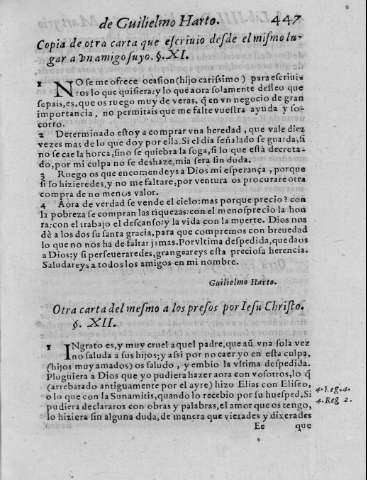 de Guilielmo Harto. 447
Copia de otra carta que escriuio desde el mismo lu-
gar a vn amigo suyo. §. XI.
1 NO se me ofrece ocasion (hijo carissimo) para escriui-
ros lo que quisiera; y lo que aora solamente desseo que
sepais, es, que os ruego muy de veras, q̃ en vn negocio de gran
importancia, no permitais que me falte vuestra ayuda y so-
corro.
2 Determinado estoy a comprar vna heredad, que vale diez
vezes mas de lo que doy por ella. Si el dia señalado se guarda, si
no se cae la horca, sino se quiebra la soga, si lo que està decreta-
do, por mi culpa no se deshaze, mia sera sin duda.
3 Ruego os que encomendeys a Dios mi esperança, porque
si so hizieredes, y no me faltare, por ventura os procurare otra
compra de no menos valor.
4 Aora de verdad se vende el cielo: mas porque precio? con
la pobreza se compran las riquezas: con el menosprecio la hon
ra: con el trabajo el descanso: y la vida con la muerte. Dios nos
dè a los dos su santa gracia, para que compremos con breuedad
lo que no nos ha de faltar jamas. Por vltima despedida, quedaos
a Dios: y si perseueraredes, grangeareys esta preciosa herencia.
Saludareys a todos los amigos en mi nombre.
Guilielmo Harto.
Otra carta del mesmo a los presos por Iesu Christo.
§. XII.
1 INgrato es, y muy cruel aquel padre, que aũ vna sola vez
no saluda a sus hijos; y assi por no caer yo en esta culpa,
(hijos muy amados) os saludo, y embio la vltima despedida.
Pluguiera a Dios que yo pudiera hazer aora con vosotros, lo q̃
(arrebatado antiguamente por el ayre) hizo Elias con Eliseo,
o lo que con la Sunamitis, quando lo recibio por su huesped. Si
pudiera declararos con obras y palabras, el amor que os tengo,
lo hiziera sin alguna duda, de manera que vierades y dixerades
4. Reg. 4.
4. Reg. 2.
Ee que